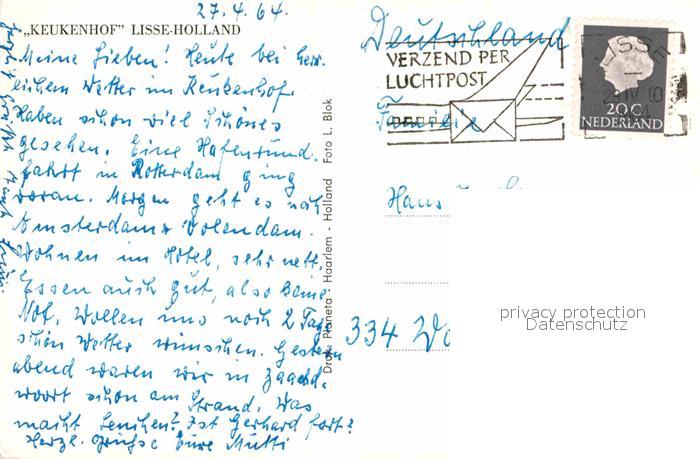 27.4.64.
„KEUKENHOF” LISSE-HOLLAND
Meine Lieben! Heute bei herr.
lichem Wetter im Keukenhof.
Haben schon viel Schönes
gesehen. Eine Hafenrund.
fahrt in Rotterdam ging
voran. Morgen geht es nach
Amsterdam u Volendam.
Wohnen im Hotel, sehr nett.
Essen auch gut, also keine
Not. Wollen uns noch 2 Tage
schön Wetter wünschen. Gestern
abend waren wir in Zandvoort
schon am Strand. Was
macht Lenchen? Ist Gerhard fort?
Herzl. Grüsse Eure Mutti
Druk: Planeta - Haarlem - Holland Foto L. Blok
Deutschland
VERZEND PER
LUCHTPOST
LISSE
20 Ct
NEDERLAND
Familie
Hans
334
privacy protection
Datenschutz